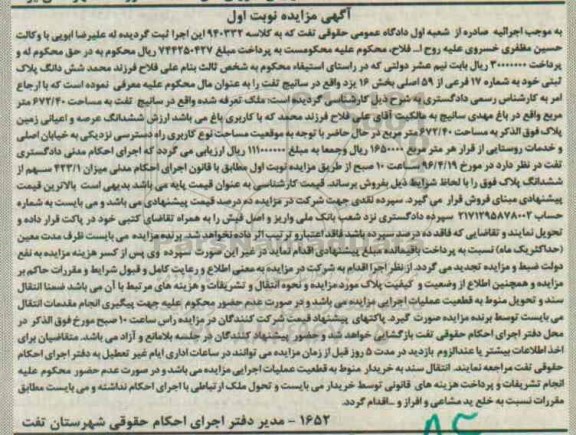 آگهی مزایده نوبت اول
به موجب اجرائیه صادره از شعبه اول دادگاه عمومی حقوقی تفت که به کلاسه ۹۴۰۳۳۲ این اجرا ثبت گردیده له علیرضا ابویی با وکالت
حسین مظفری خسروی علیه روح ا... فلاح، محکوم علیه محکومست به پرداخت مبلغ ۷۴۴۲۵۰۴۲۷ ریال محکوم به در حق محکوم له و
پرداخت ۳۰۰۰۰۰۰۰ ریال بابت نیم عشر دولتی که در راستای استیفاء محکوم به شخص ثالث بنام علی فلاح فرزند محمد شش دانگ پلاک
ثبتی خود به شماره ۱۷ فرعی از ۵۹ اصلی بخش ۱۶ یزد واقع در سانیچ تفت را به عنوان مال محکوم علیه معرفی نموده است که با ارجاع
امر به کارشناس رسمی دادگستری به شرح ذیل کارشناسی گردیده است: ملک تعرفه شده واقع در سانیچ تفت به مساحت ۶۷۲/۴۰ متر
مربع واقع در باغ مهدی سانیچ به مالکیت آقای علی فلاح فرزند محمد که با کاربری باغ می باشد ارزش ششدانگ عرصه و اعیانی زمین
پلاک فوق الذکر به مساحت ۶۷۲/۴۰ متر مربع در حال حاضر با توجه به موقعیت مساحت نوع کاربری راه دسترسی نزدیکی به خیابان اصلی
و خدمات روستایی از قرار هر متر مربع ۱۶۵۰۰۰۰ ریال وجمعا به مبلغ ۱۱۱۰۰۰۰۰۰۰ ریال ارزیابی می گردد که اجرای احکام مدنی دادگستری
تفت در نظر دارد در مورخ ۹۶/۴/۱۹ ساعت ۱۰ صبح از طریق مزایده نوبت اول مطابق با قانون اجرای احکام مدنی میزان ۴۳۳/۱ سهم از
ششدانگ پلاک فوق را با لحاظ شرایط ذیل بفروش برساند. قیمت کارشناسی به عنوان قیمت پایه می باشد بدیهی است بالاترین قیمت
پیشنهادی مبنای فروش قرار می گیرد. سپرده نقدی جهت شرکت در مزایده ده درصد قیمت پیشنهادی می باشد و می بایست به شماره
حساب ۲۱۷۱۲۹۵۸۷۸۰۰۲ سپرده دادگستری نزد شعب بانک ملی واریز و اصل فیش را به همراه تقاضای کتبی خود در پاکت قرار داده و
تحویل نمایند و تقاضایی که فاقد ده درصد سپرده باشد فاقد اعتبار و ترتیب اثر داده نخواهد شد. برنده مزایده می بایست ظرف مدت معین
(حداکثر یک ماه) نسبت به پرداخت باقیمانده مبلغ پیشنهادی اقدام نماید در غیر این صورت سپرده وی پس از کسر هزینه مزایده به نفع
دولت ضبط و مزایده تجدید می گردد. از نظر اجرا اقدام به شرکت در مزایده به معنی اطلاع و رعایت کامل و قبول شرایط و مقررات حاکم بر
مزایده و همچنین اطلاع از وضعیت و کیفیت پلاک مورد مزایده و نحوه انتقال و تشریفات و هزینه های مرتبط با آن می باشد ضمنا انتقال
سند و تحویل منوط به قطعیت عملیات اجرایی مزایده می باشد و در صورت عدم حضور محکوم علیه جهت پیگیری انجام مقدمات انتقال
می بایست توسط برنده مزایده صورت گیرد. پاکتهای پیشنهاد قیمت شرکت کنندگان در مزایده راس ساعت ۱۰ صبح مورخ فوق الذکر در
محل دفتر اجرای احکام حقوقی تفت بازگشائی خواهد شد و حضور پیشنهاد کنندگان در جلسه بلامانع و آزاد می باشد. متقاضیان برای
اخذ اطلاعات بیشتر یا عندالزوم بازدید در مدت ۵ روز قبل از زمان مزایده می توانند در ساعات اداری ایام غیر تعطیل به دفتر اجرای احکام
حقوقی تفت مراجعه نمایند. انتقال سند به خریدار منوط به قطعیت عملیات اجرایی مزایده می باشد و در صورت عدم حضور محکوم علیه
انجام تشریفات و پرداخت هزینه های قانونی توسط خریدار می بایست و تحول ملک ارتباطی با اجرای احکام نداشته و می بایست مطابق
مقررات نسبت به خلع ید مشاعی و افراز و ...اقدام گردد.
۱۶۵۲ - مدیر دفتر اجرای احکام حقوقی شهرستان تفت